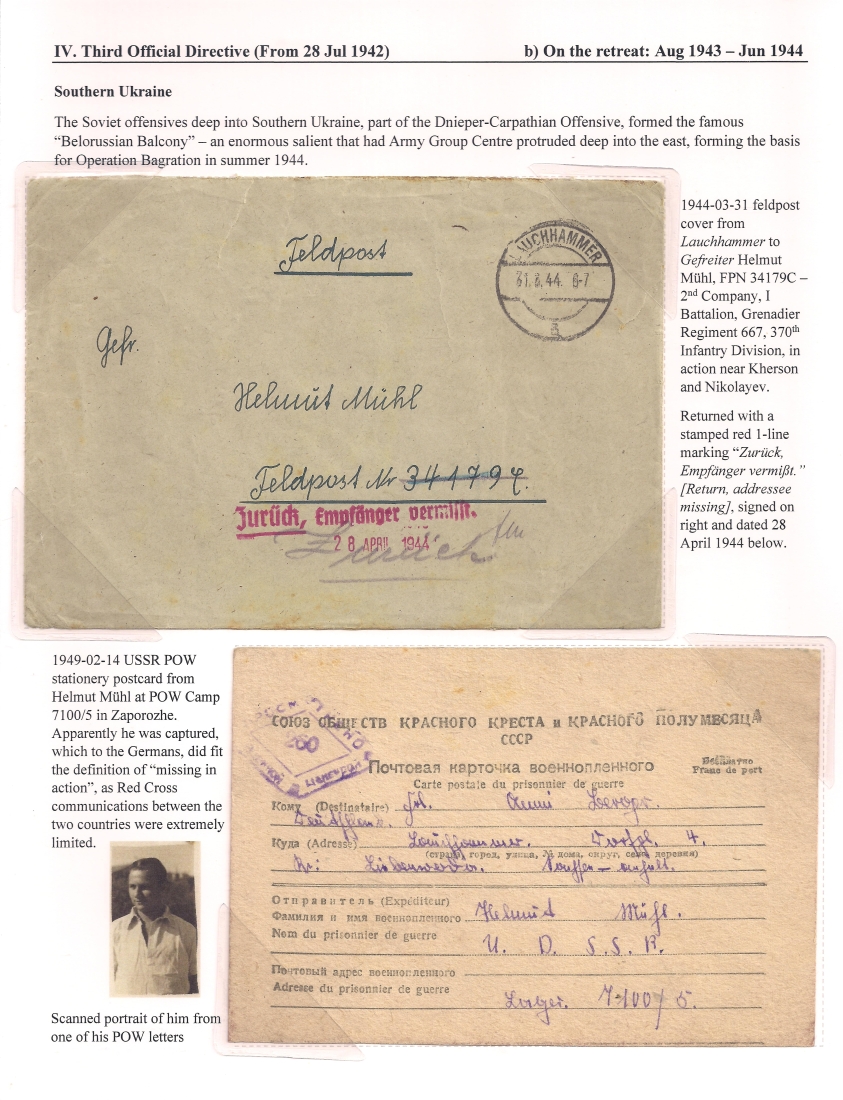 IV. Third Official Directive (From 28 Jul 1942) b) On the retreat: Aug 1943 – Jun 1944
Southern Ukraine
The Soviet offensives deep into Southern Ukraine, part of the Dnieper-Carpathian Offensive, formed the famous
“Belorussian Balcony” – an enormous salient that had Army Group Centre protruded deep into the east, forming the basis
for Operation Bagration in summer 1944.
Feldpost
LAUCHHAMMER
31.3.44. 6-7
a
Gefr.
Helmut Mühl
Feldpost Nr 34179C.
Zurück, Empfänger vermißt.
28 APRIL 1944
Zurück
1944-03-31 feldpost
cover from
Lauchhammer to
Gefreiter Helmut
Mühl, FPN 34179C –
2nd Company, I
Battalion, Grenadier
Regiment 667, 370th
Infantry Division, in
action near Kherson
and Nikolayev.
Returned with a
stamped red 1-line
marking “Zurück,
Empfänger vermißt.”
[Return, addressee
missing], signed on
right and dated 28
April 1944 below.
1949-02-14 USSR POW
stationery postcard from
Helmut Mühl at POW Camp
7100/5 in Zaporozhe.
Apparently he was captured,
which to the Germans, did fit
the definition of “missing in
action”, as Red Cross
communications between the
two countries were extremely
limited.
Scanned portrait of him from
one of his POW letters
СОЮЗ ОБЩЕСТВ КРАСНОГО КРЕСТА и КРАСНОГО ПОЛУМЕСЯЦА
СССР
Почтовая карточка военнопленного
Бесплатно
Franc de port
Carte postale du prisonnier de guerre
Кому (Destinataire) Frl.
Куда (Adresse) Lauchhammer. Dorfpl. 4.
(страна, город, улица, № дома, округ, село, деревня)
Отправитель (Expéditeur)
Фамилия и имя военнопленного Helmut Mühl.
Nom du prisonnier de guerre
U. D. S. S. R.
Почтовый адрес военнопленного
Adresse du prisonnier de guerre
Lager. 7100/5.